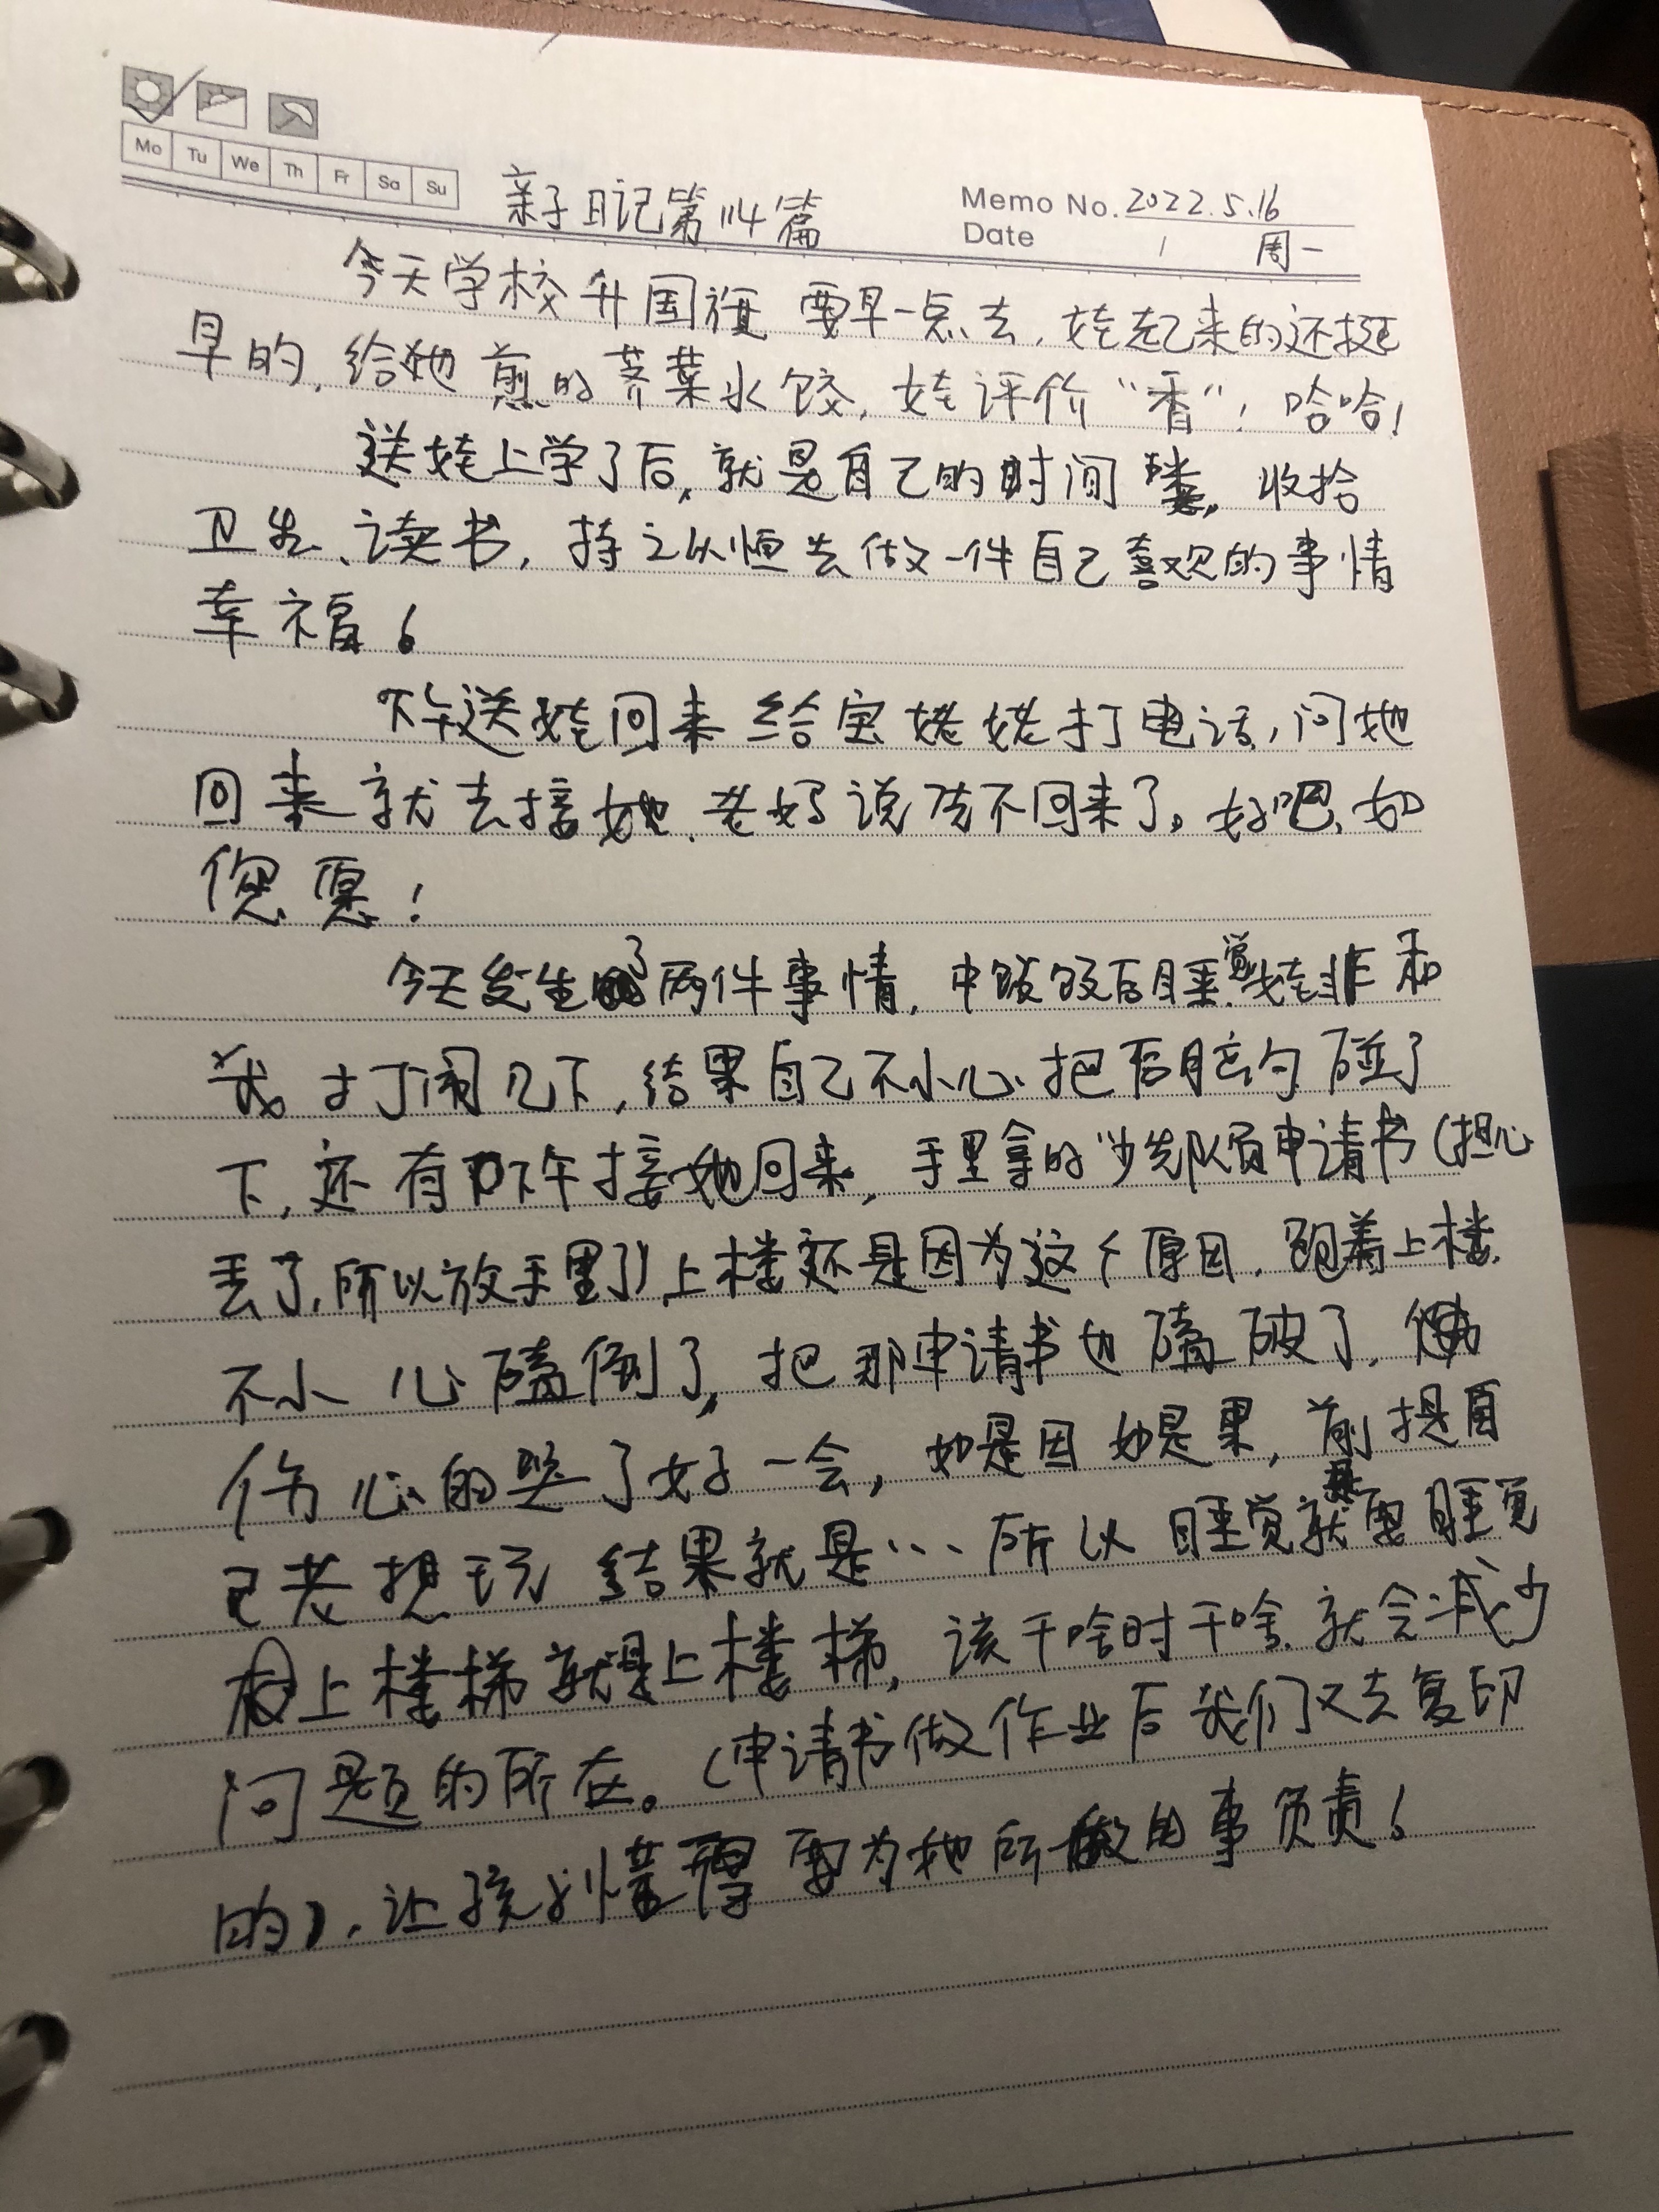 Mo Tu We Th Fr Sa Su
亲子日记第114篇
Memo No. 2022.5.16
Date / 周一
今天学校升国旗 要早一点去,娃起来的还挺
早的,给她煎的荠菜水饺,娃评价“香”!哈哈!
送娃上学了后,就是自己的时间喽。收拾
卫生、读书,持之以恒去做一件自己喜欢的事情
幸福!
下午送娃回来给宝姥姥打电话,问她
回来就去接她.老妈说先不回来了。好吧,如
您愿!
今天发生了两件事情,中饭饭后睡觉娃非和
我打闹几下,结果自己不小心把后脑勺碰了
下,还有下午接她回来,手里拿的少先队员申请书(担心
丢了,所以放手里了)上楼还是因为这个原因,跑着上楼.
不小心磕倒了,把那申请书也磕破了,
伤心的哭了好一会,如是因如是果,前提自
己老想玩 结果就是…所以睡觉就是要睡觉
上楼梯就是上楼梯,该干啥时干啥.就会减少
问题的所在。(申请书做作业后我们又去复印
的),让孩子懂得要为她所做的事负责!